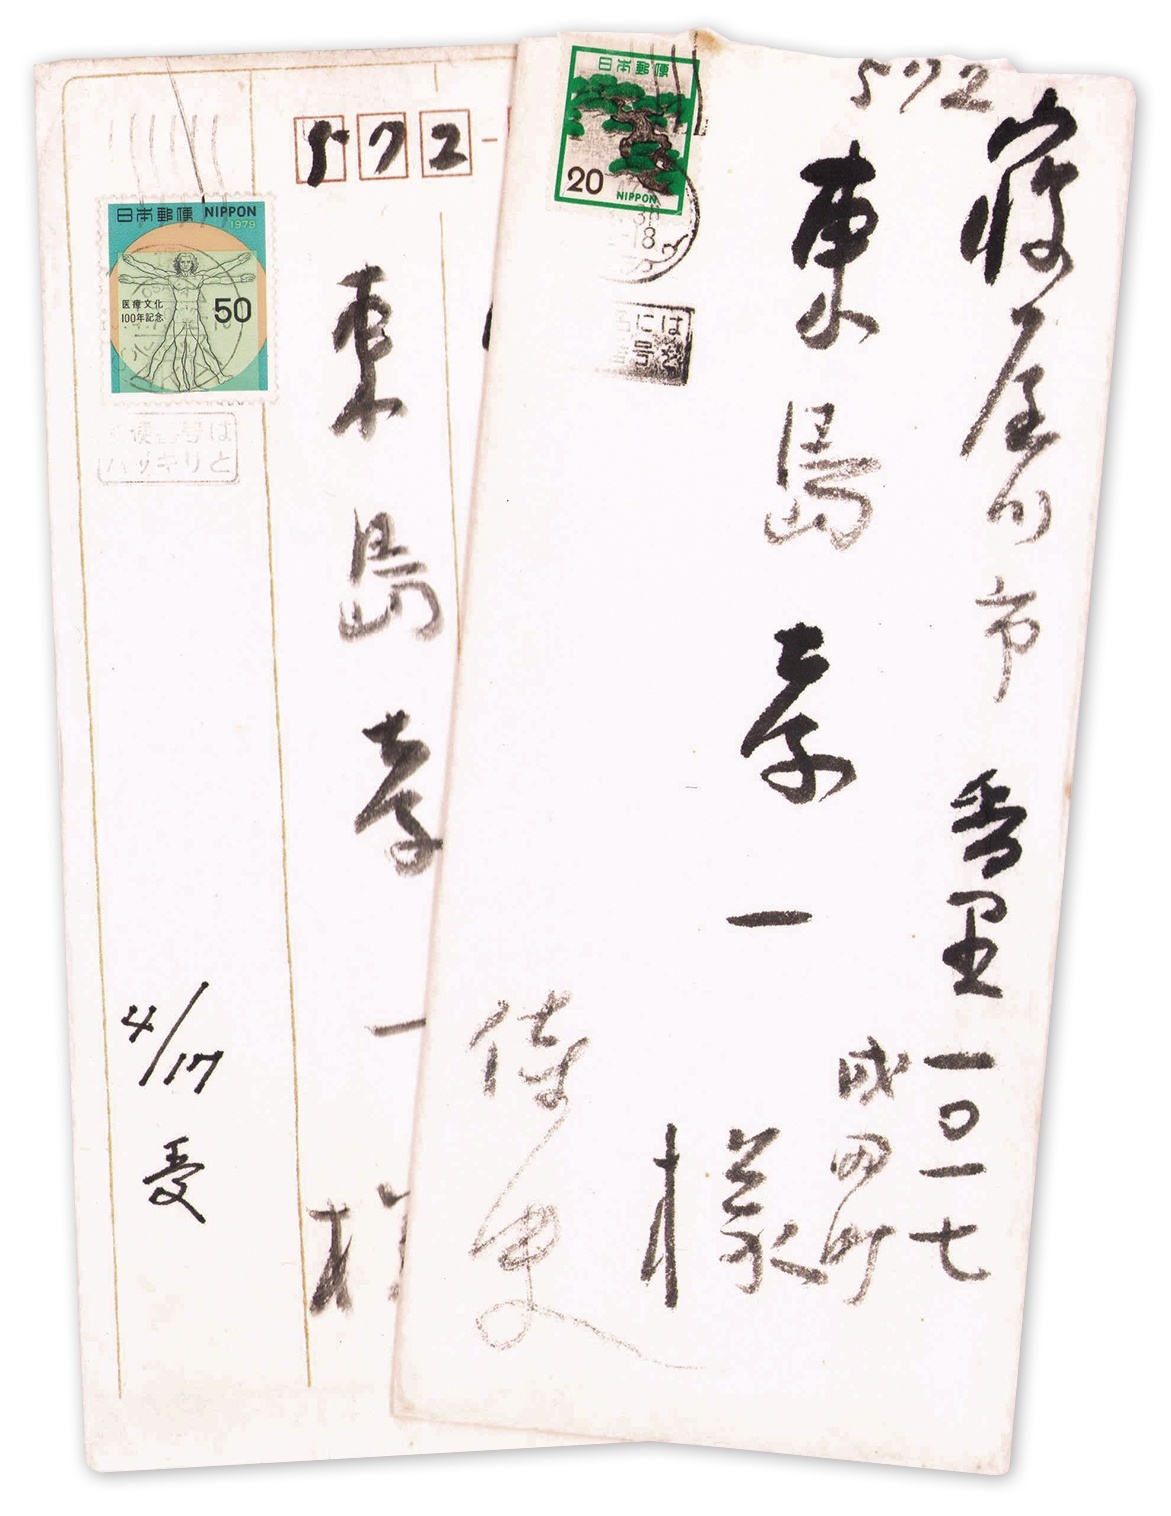 572
寝屋川市香里
一〇一七
成田町
東島孝一
様
侍史
日本郵便
20
NIPPON
18
には
号を
572
東島孝一
様
日本郵便 NIPPON
1979
医療文化
100年記念
50
便番号は
ハッキリと
4/17
受